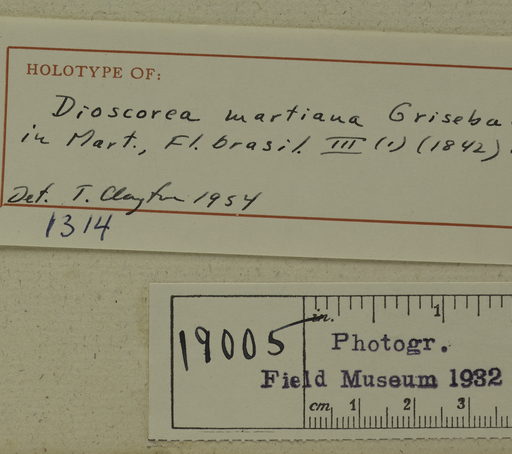 HOLOTYPE OF:
Dioscorea martiana Griseba
in Mart., Fl. brasil. III (1) (1842)
Det. T. Clayton 1954
1314
in. 1
19005
Photogr.
Field Museum 1932
cm 1 2 3